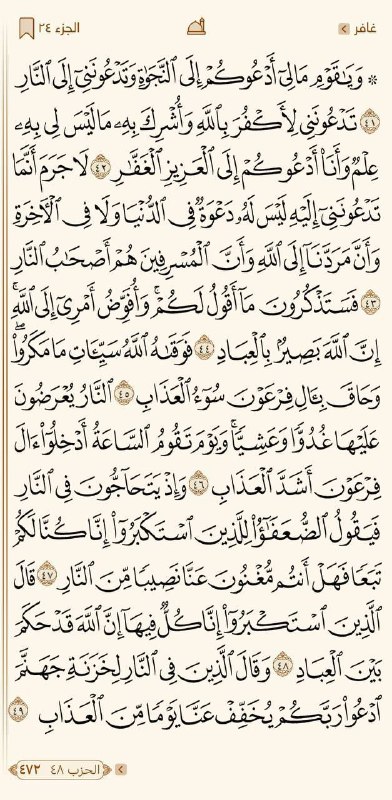 غافر الجزء ٢٤
۞ وَيَٰقَوْمِ مَا لِىٓ أَدْعُوكُمْ إِلَى ٱلنَّجَوٰةِ وَتَدْعُونَنِىٓ إِلَى ٱلنَّارِ
٤١ تَدْعُونَنِى لِأَكْفُرَ بِٱللَّهِ وَأُشْرِكَ بِهِۦ مَا لَيْسَ لِى بِهِۦ
عِلْمٌ وَأَنَا۠ أَدْعُوكُمْ إِلَى ٱلْعَزِيزِ ٱلْغَفَّٰرِ ٤٢ لَا جَرَمَ أَنَّمَا
تَدْعُونَنِىٓ إِلَيْهِ لَيْسَ لَهُۥ دَعْوَةٌ فِى ٱلدُّنْيَا وَلَا فِى ٱلْءَاخِرَةِ
وَأَنَّ مَرَدَّنَآ إِلَى ٱللَّهِ وَأَنَّ ٱلْمُسْرِفِينَ هُمْ أَصْحَٰبُ ٱلنَّارِ
٤٣ فَسَتَذْكُرُونَ مَآ أَقُولُ لَكُمْ ۚ وَأُفَوِّضُ أَمْرِىٓ إِلَى ٱللَّهِ ۚ
إِنَّ ٱللَّهَ بَصِيرٌۢ بِٱلْعِبَادِ ٤٤ فَوَقَىٰهُ ٱللَّهُ سَيِّـَٔاتِ مَا مَكَرُوا۟ ۖ
وَحَاقَ بِـَٔالِ فِرْعَوْنَ سُوٓءُ ٱلْعَذَابِ ٤٥ ٱلنَّارُ يُعْرَضُونَ
عَلَيْهَا غُدُوًّا وَعَشِيًّا ۖ وَيَوْمَ تَقُومُ ٱلسَّاعَةُ أَدْخِلُوٓا۟ ءَالَ
فِرْعَوْنَ أَشَدَّ ٱلْعَذَابِ ٤٦ وَإِذْ يَتَحَآجُّونَ فِى ٱلنَّارِ
فَيَقُولُ ٱلضُّعَفَٰٓؤُا۟ لِلَّذِينَ ٱسْتَكْبَرُوٓا۟ إِنَّا كُنَّا لَكُمْ
تَبَعًا فَهَلْ أَنتُم مُّغْنُونَ عَنَّا نَصِيبًا مِّنَ ٱلنَّارِ ٤٧ قَالَ
ٱلَّذِينَ ٱسْتَكْبَرُوٓا۟ إِنَّا كُلٌّ فِيهَآ إِنَّ ٱللَّهَ قَدْ حَكَمَ
بَيْنَ ٱلْعِبَادِ ٤٨ وَقَالَ ٱلَّذِينَ فِى ٱلنَّارِ لِخَزَنَةِ جَهَنَّمَ
ٱدْعُوا۟ رَبَّكُمْ يُخَفِّفْ عَنَّا يَوْمًا مِّنَ ٱلْعَذَابِ ٤٩
الحزب ٤٨ ٤٧٢